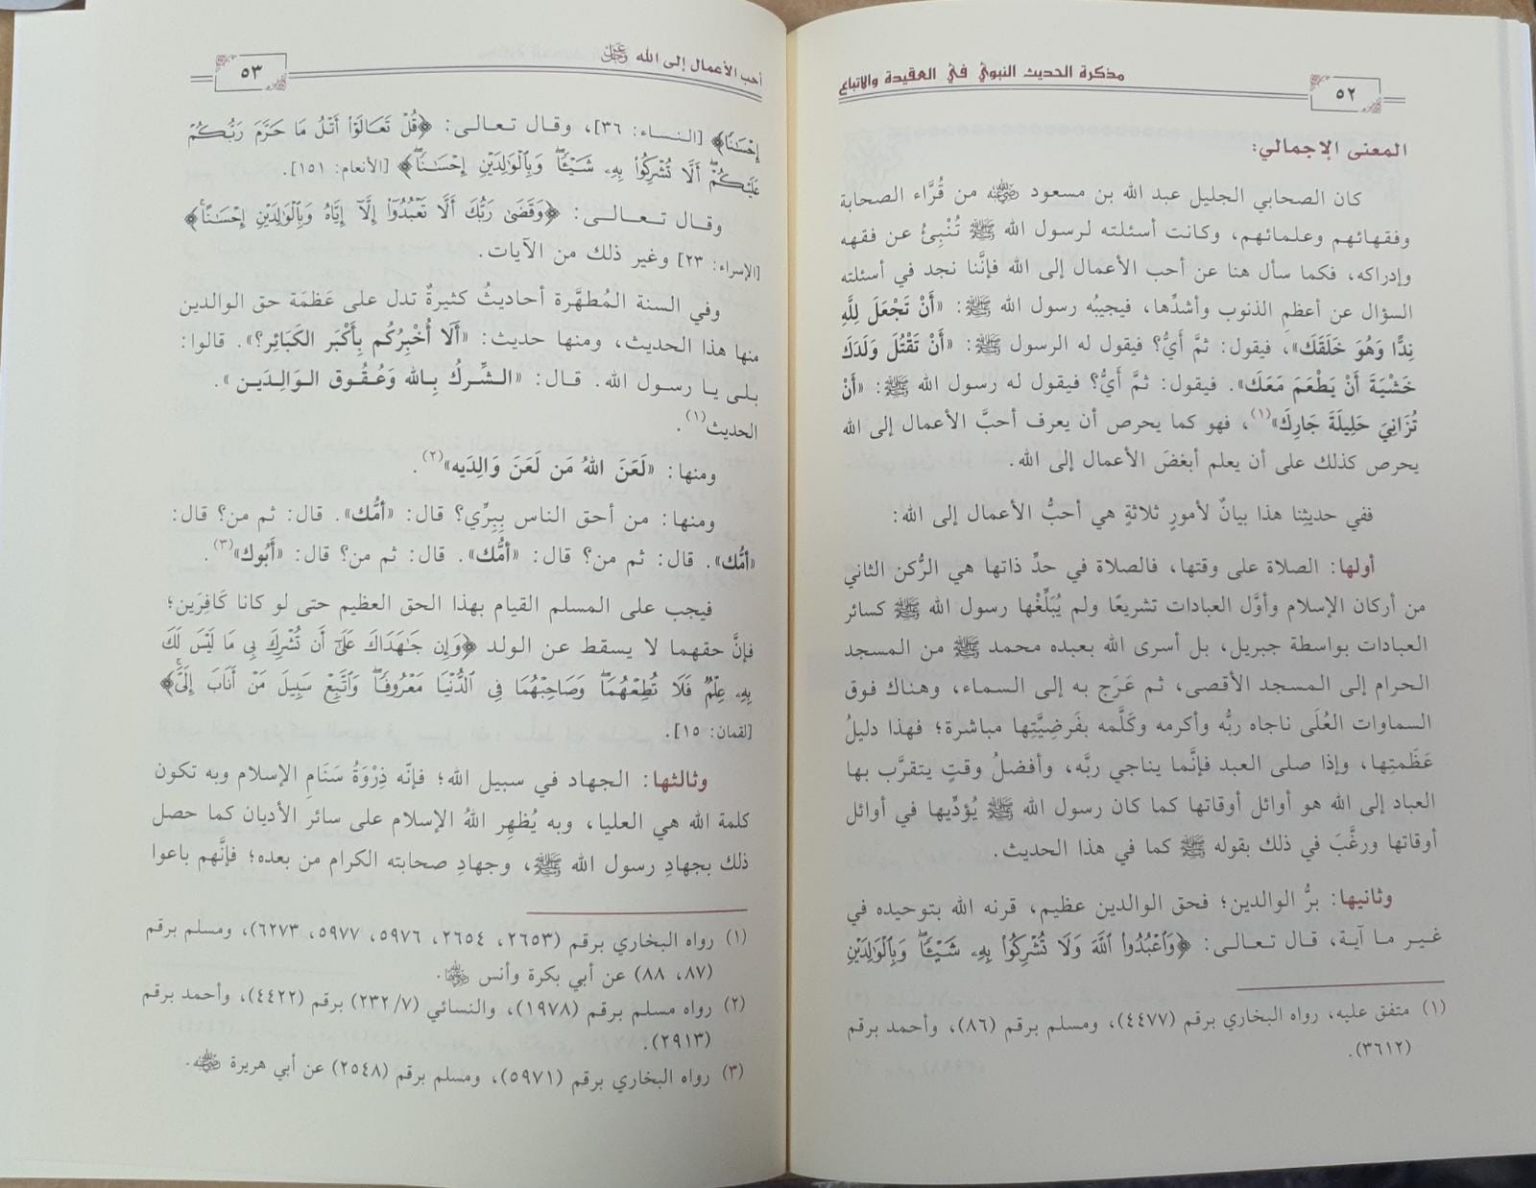 مذكرة الحديث النبوي في العقيدة والاتباع
٥٢
المعنى الإجمالي:
كان الصحابي الجليل عبد الله بن مسعود رضي الله عنه من قُرَّاء الصحابة
وفقهائهم وعلمائهم، وكانت أسئلته لرسول الله ﷺ تُنْبِئُ عن فقهه
وإدراكه، فكما سأل هنا عن أحب الأعمال إلى الله فإنَّنا نجد في أسئلته
السؤال عن أعظمِ الذنوب وأشدِّها، فيجيبُه رسول الله ﷺ: «أَنْ تَجْعَلَ لِلَّهِ
نِدًّا وَهُوَ خَلَقَكَ»، فيقول: ثمَّ أَيُّ؟ فيقول له الرسول ﷺ: «أَنْ تَقْتُلَ وَلَدَكَ
خَشْيَةَ أَنْ يَطْعَمَ مَعَكَ». فيقول: ثمَّ أَيُّ؟ فيقول له رسول الله ﷺ: «أَنْ
تُزَانِيَ حَلِيلَةَ جَارِكَ»(١)، فهو كما يحرص أن يعرف أحبَّ الأعمال إلى الله
يحرص كذلك على أن يعلم أبغضَ الأعمال إلى الله.
ففي حديثِنا هذا بيانٌ لأمورٍ ثلاثةٍ هي أحبُّ الأعمال إلى الله:
أولها: الصلاة على وقتها، فالصلاة في حدِّ ذاتها هي الرُّكن الثاني
من أركان الإسلام وأوَّل العبادات تشريعًا ولم يُبَلِّغْها رسول الله ﷺ كسائر
العبادات بواسطة جبريل، بل أسرى الله بعبده محمد ﷺ من المسجد
الحرام إلى المسجد الأقصى، ثم عَرَج به إلى السماء، وهناك فوق
السماوات العُلَى ناجاه ربُّه وأكرمه وكَلَّمه بفَرضِيَّتِها مباشرة؛ فهذا دليلُ
عَظَمتِها، وإذا صلى العبد فإنَّما يناجي ربَّه، وأفضلُ وقتٍ يتقرَّب بها
العباد إلى الله هو أوائل أوقاتها كما كان رسول الله ﷺ يُؤدِّيها في أوائل
أوقاتها ورغَّبَ في ذلك بقوله ﷺ كما في هذا الحديث.
وثانيها: برُّ الوالدين؛ فحق الوالدين عظيم، قرنه الله بتوحيده في
غير ما آية، قال تعالى: ﴿وَٱعْبُدُوا۟ ٱللَّهَ وَلَا تُشْرِكُوا۟ بِهِۦ شَيْـًٔا ۖ وَبِٱلْوَٰلِدَيْنِ
(١) متفق عليه، رواه البخاري برقم (٤٤٧٧)، ومسلم برقم (٨٦)، وأحمد برقم
(٣٦١٢).
أحب الأعمال إلى الله عز وجل
٥٣
إِحْسَـٰنًا﴾ [النساء: ٣٦]، وقال تعالى: ﴿قُلْ تَعَالَوْا۟ أَتْلُ مَا حَرَّمَ رَبُّكُمْ
عَلَيْكُمْ ۖ أَلَّا تُشْرِكُوا۟ بِهِۦ شَيْـًٔا ۖ وَبِٱلْوَٰلِدَيْنِ إِحْسَـٰنًا ۖ﴾ [الأنعام: ١٥١].
وقال تعالى: ﴿وَقَضَىٰ رَبُّكَ أَلَّا تَعْبُدُوٓا۟ إِلَّآ إِيَّاهُ وَبِٱلْوَٰلِدَيْنِ إِحْسَـٰنًا ۚ﴾
[الإسراء: ٢٣] وغير ذلك من الآيات.
وفي السنة المُطهَّرة أحاديثُ كثيرةٌ تدل على عَظمَة حق الوالدين
منها هذا الحديث، ومنها حديث: «أَلَا أُخْبِرُكُم بِأَكْبَر الكَبَائِر؟». قالوا:
بلى يا رسول الله. قال: «الشِّركُ بِالله وَعُقُوق الوَالِدَين».
الحديث(١).
ومنها: «لَعَنَ اللهُ مَن لَعَنَ وَالِدَيه»(٢).
ومنها: من أحق الناس بِبِرِّي؟ قال: «أمُّك». قال: ثم من؟ قال:
«أمُّك». قال: ثم من؟ قال: «أمُّك». قال: ثم من؟ قال: «أَبُوك»(٣).
فيجب على المسلم القيام بهذا الحق العظيم حتى لو كانا كَافِرَين؛
فإنَّ حقهما لا يسقط عن الولد ﴿وَإِن جَـٰهَدَاكَ عَلَىٰٓ أَن تُشْرِكَ بِى مَا لَيْسَ لَكَ
بِهِۦ عِلْمٌ فَلَا تُطِعْهُمَا ۖ وَصَاحِبْهُمَا فِى ٱلدُّنْيَا مَعْرُوفًا ۖ وَٱتَّبِعْ سَبِيلَ مَنْ أَنَابَ إِلَىَّ ۚ﴾
[لقمان: ١٥].
وثالثها: الجهاد في سبيل الله؛ فإنّه ذِرْوَةُ سَنَامِ الإسلام وبه تكون
كلمة الله هي العليا، وبه يُظهِر اللهُ الإسلام على سائر الأديان كما حصل
ذلك بجهادِ رسول الله ﷺ، وجهادِ صحابته الكرام من بعده؛ فإنَّهم باعوا
(١) رواه البخاري برقم (٢٦٥٣، ٢٦٥٤، ٥٩٧٦، ٥٩٧٧، ٦٢٧٣)، ومسلم برقم
(٨٧، ٨٨) عن أبي بكرة وأنس رضي الله عنهما.
(٢) رواه مسلم برقم (١٩٧٨)، والنسائي (٢٣٢/٧) برقم (٤٤٢٢)، وأحمد برقم
(٢٩١٣).
(٣) رواه البخاري برقم (٥٩٧١)، ومسلم برقم (٢٥٤٨) عن أبي هريرة رضي الله عنه.